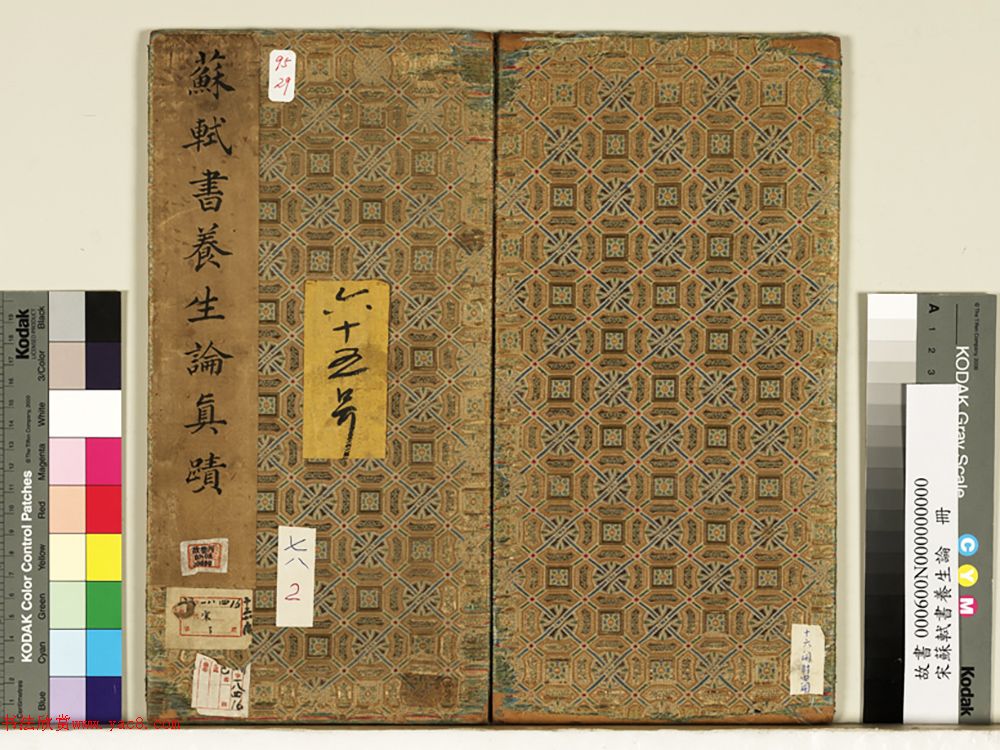 蘇軾書養生論真蹟
95
29
六十五号
七八
2
KODAK Color Control Patches
© The Tiffen Company, 2000
Kodak
LICENSED PRODUCT
Black
3/Color
White
Magenta
Red
Yellow
Green
Cyan
Blue
Centimetres
A 1 2 3
© The Tiffen Company, 2000
KODAK Gray Scale
C
Y
M
Kodak
故書 000600N000000000
宋蘇軾書養生論 冊
书法欣赏www.yac8.com